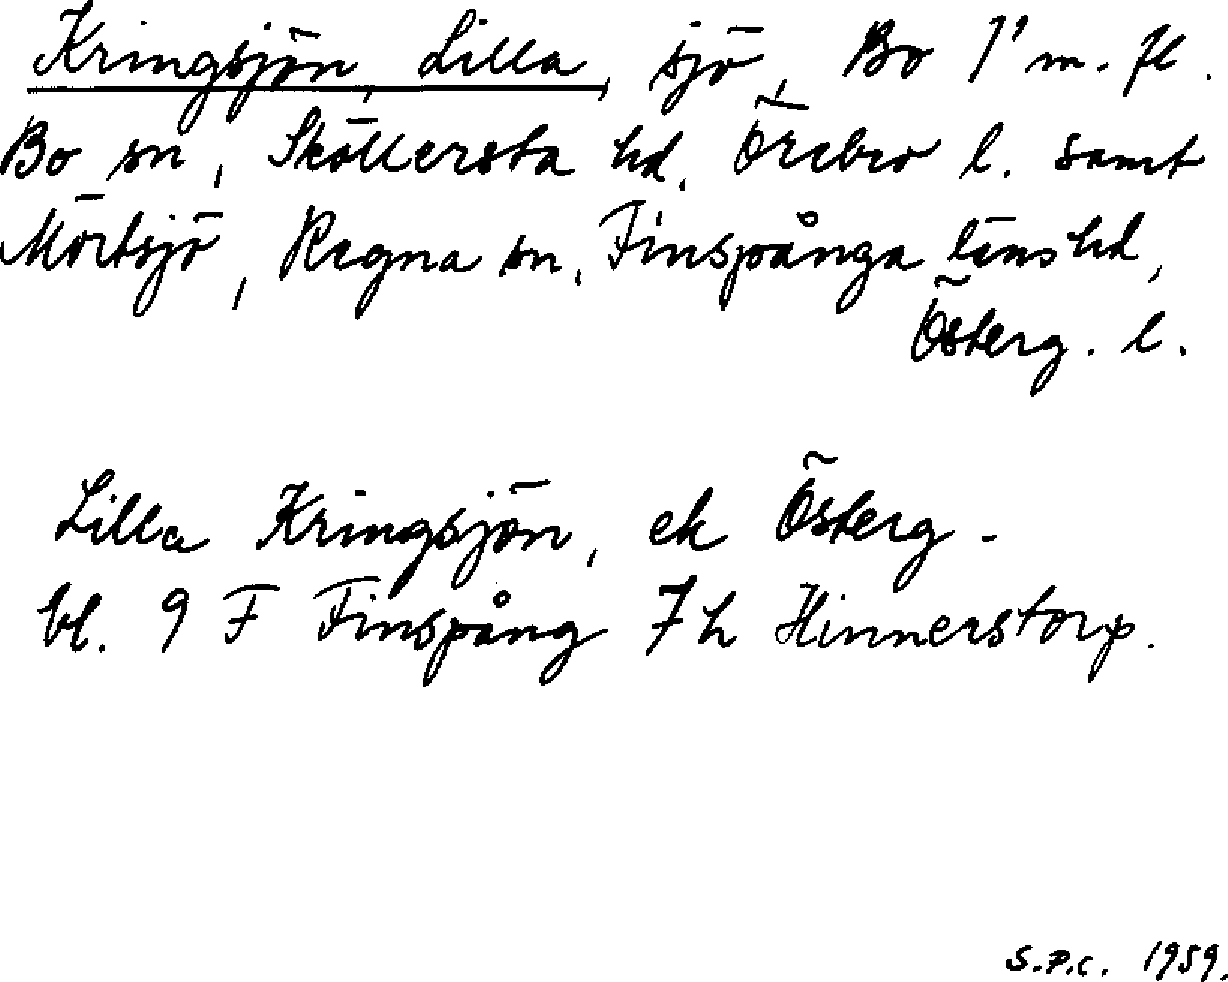 Kringsjön, Lilla, sjö, Bo 1¹ m. fl.
Bo sn, Sköllersta hd, Örebro l. samt
Mörtsjö, Regna sn, Finspånga länshd,
Österg. l.
Lilla Kringsjön, ek Österg -
bl. 9 F Finspång 7 h Hinnerstorp.
S.P.C. 1959.